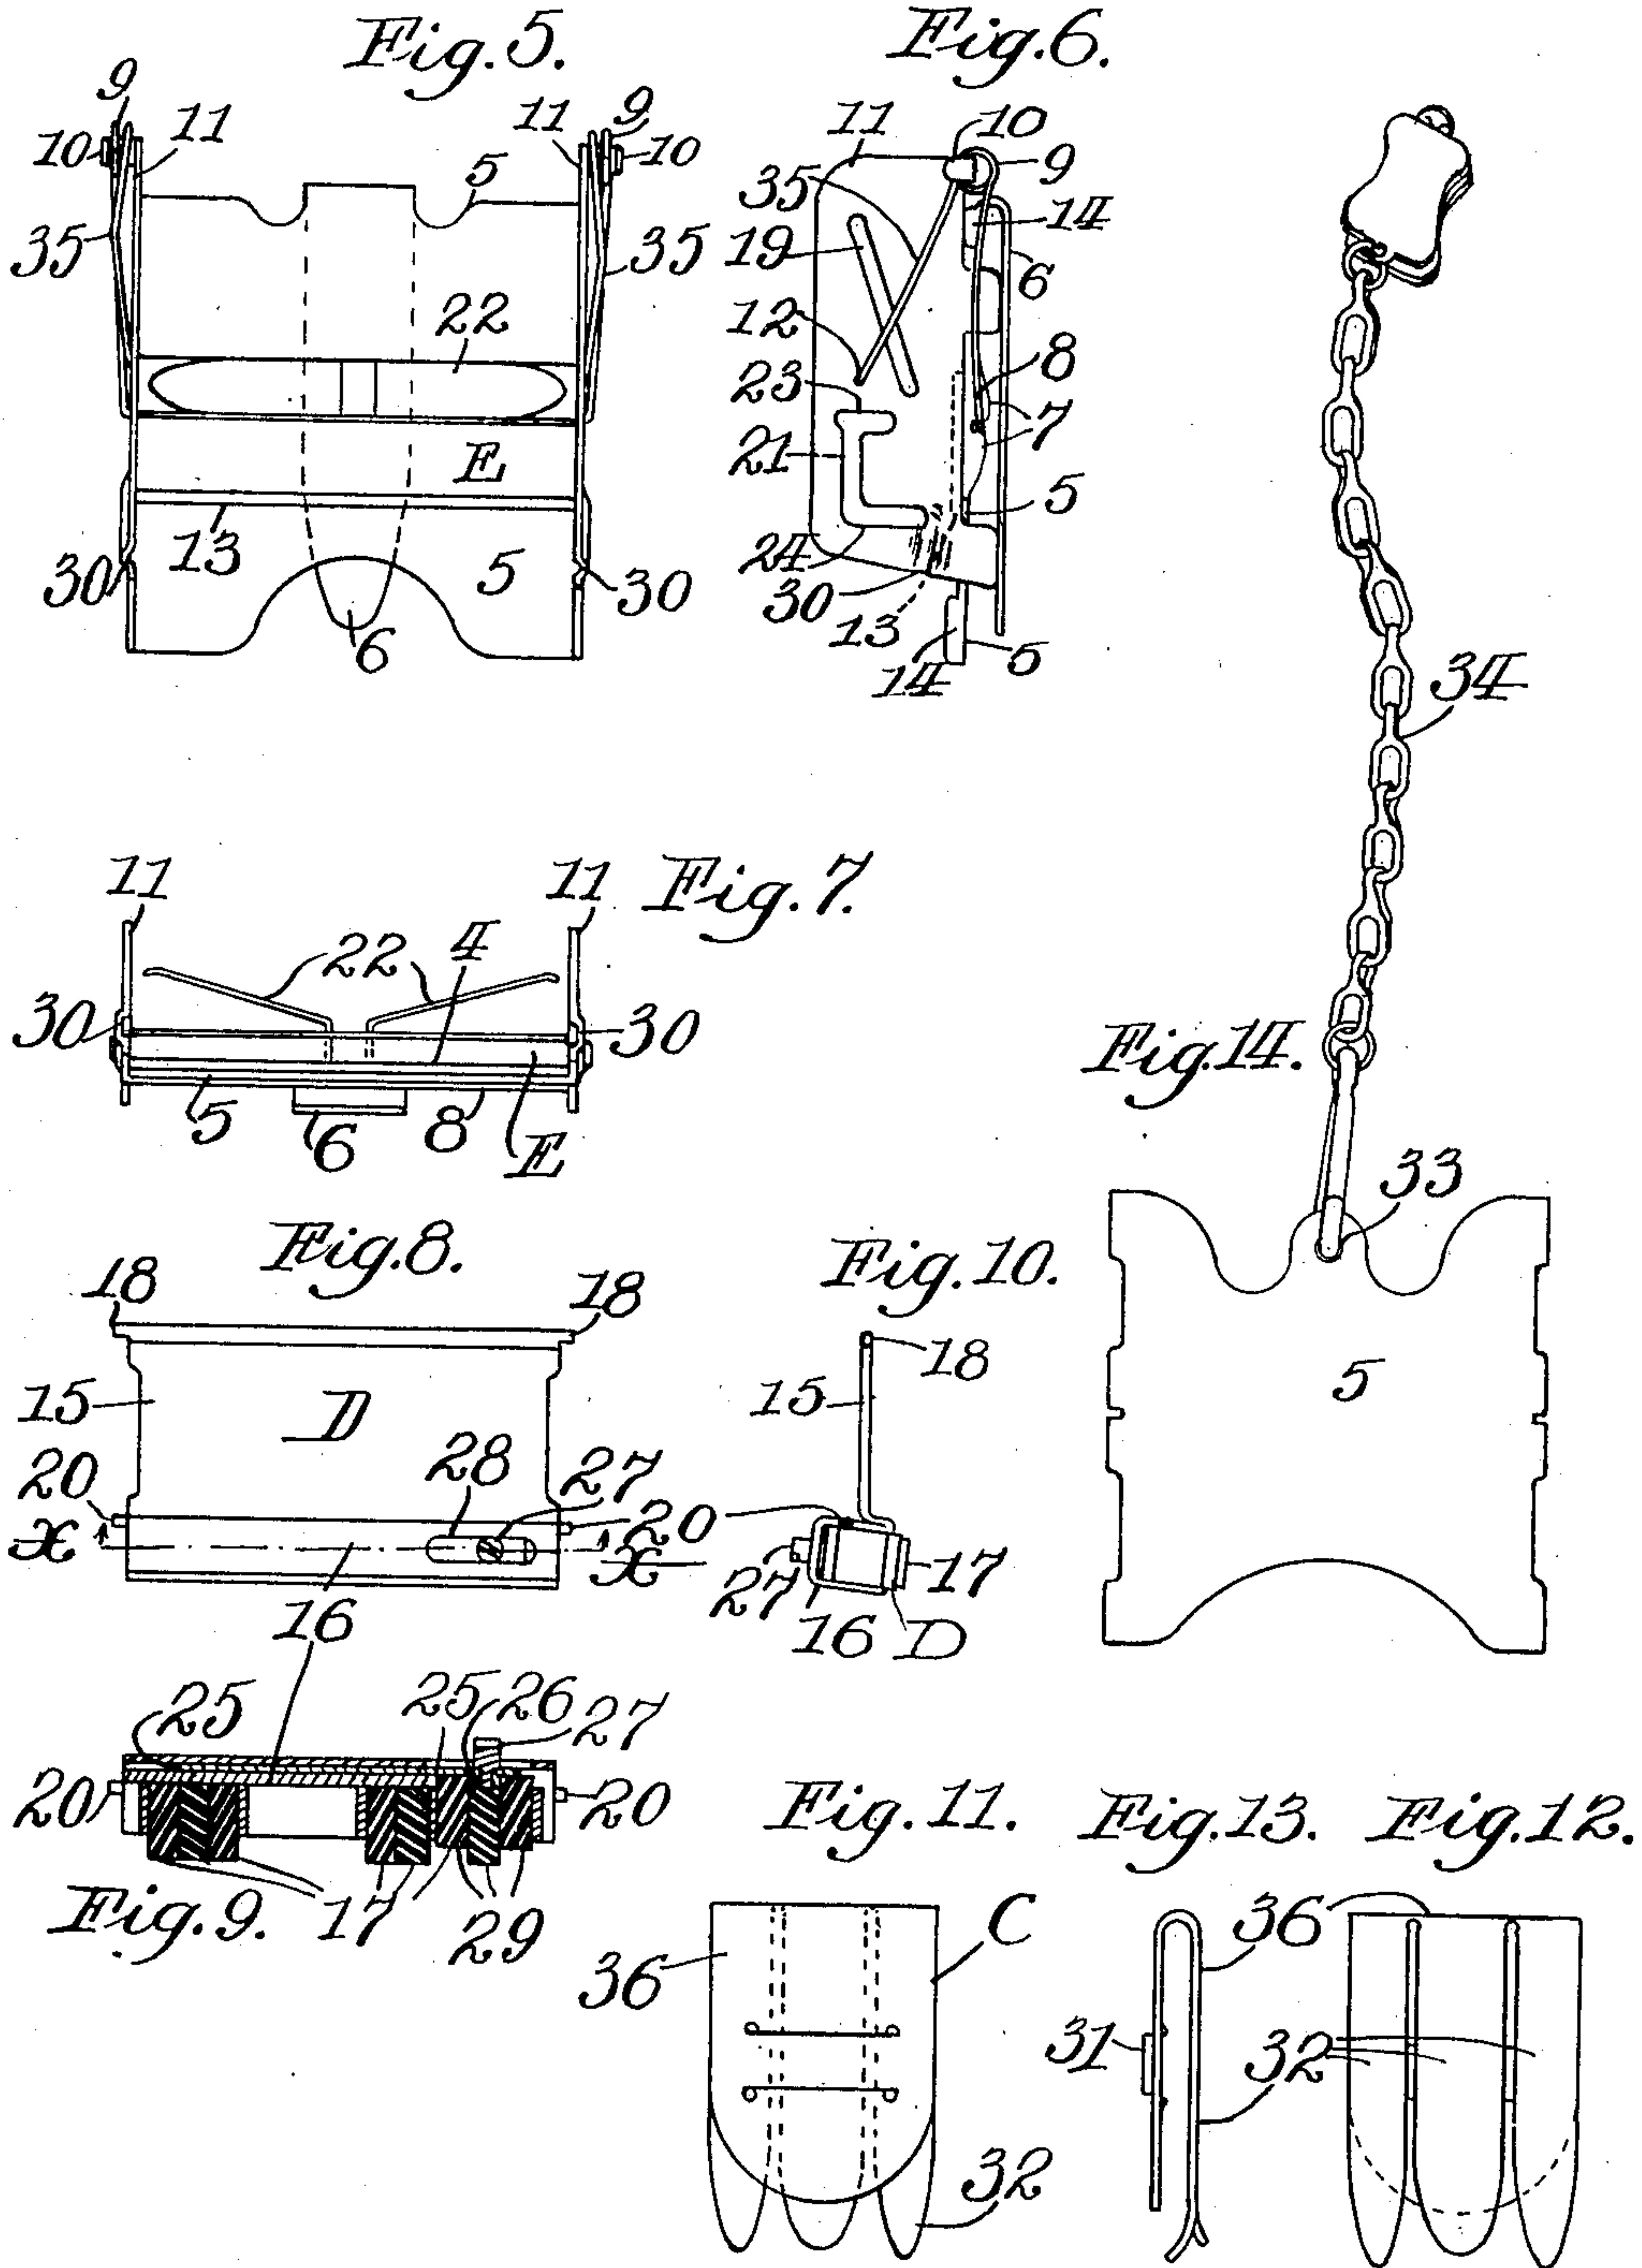 Fig. 5.
9
10
11
11
9
10
5
35
35
22
E
13
5
30
30
6
Fig. 6.
11
10
9
35
14
19
6
12
8
23
7
21
5
24
30
13
14
5
34
Fig. 7.
11
11
22
4
30
30
5
6
8
E
Fig. 14.
33
5
Fig. 8.
18
18
15
D
20
28
27
20
x
x
16
Fig. 10.
18
15
27
17
16
D
25
25
26
27
20
20
17
29
Fig. 9.
Fig. 11.
C
36
32
Fig. 13.
36
31
32
Fig. 12.